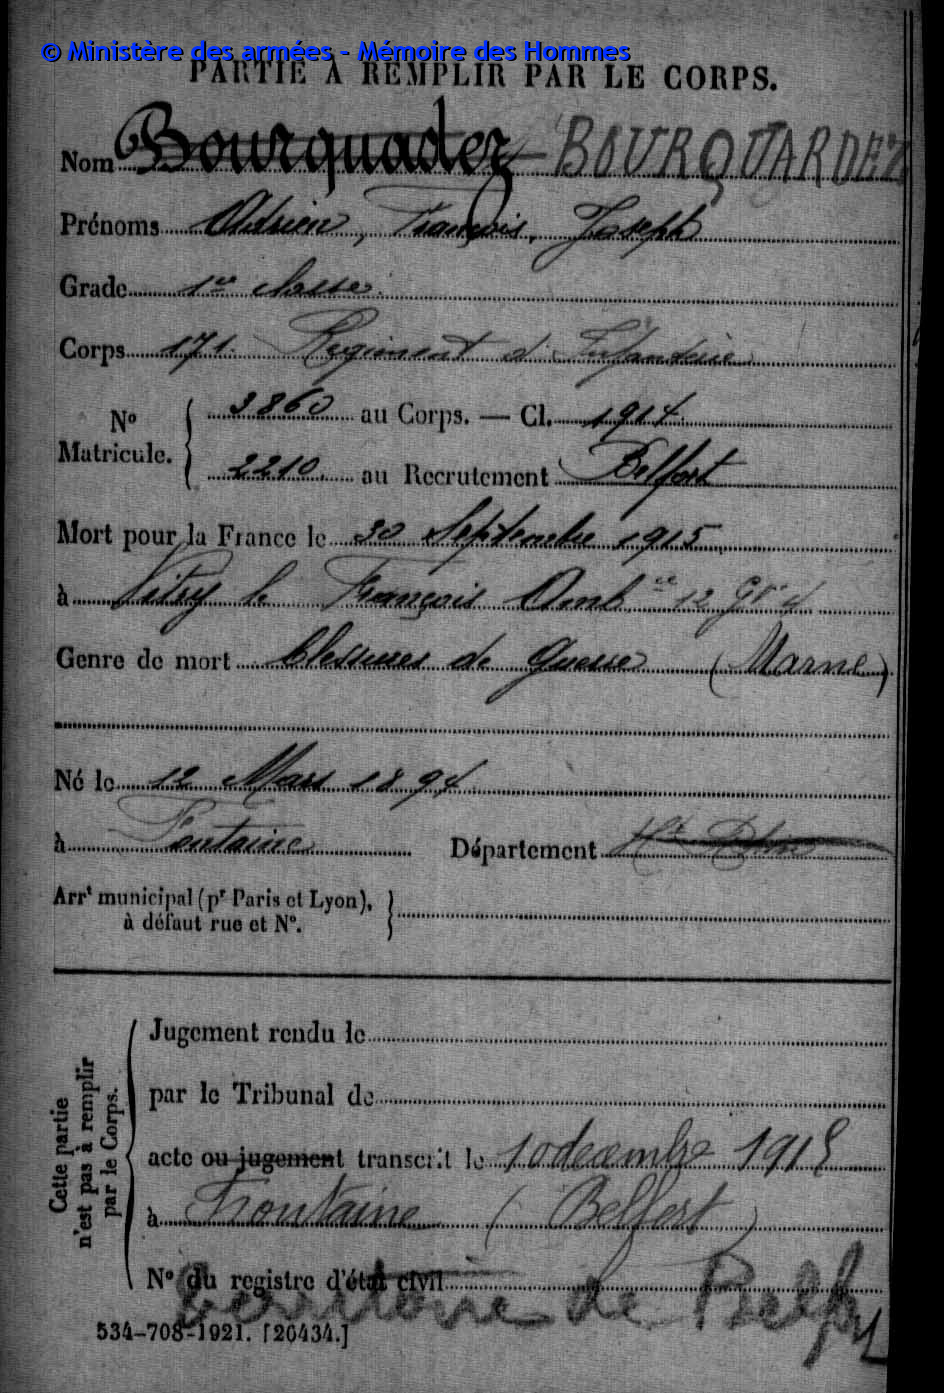 © Ministère des armées - Mémoire des Hommes
PARTIE A REMPLIR PAR LE CORPS.
Nom Bourquadez - BOURQUARDEZ
Prénoms Adrien, François, Joseph
Grade 1re classe
Corps 171 Régiment d'Infanterie
No Matricule. { 3860 au Corps. — Cl. 1914
2210 au Recrutement Belfort
Mort pour la France le 30 Septembre 1915
à Vitry le François Ambce 12
Genre de mort blessures de guerre (Marne)
Né le 12 Mars 1894
à Fontaine Département Ht Rhin
Arrt municipal (pr Paris et Lyon), }
à défaut rue et No.
Cette partie n'est pas à remplir par le Corps.
Jugement rendu le
par le Tribunal de
acte ou jugement transcrit le 10 décembre 1915
à Frontaine (Belfort)
No du registre d'état civil
territoire de Belfort
534-708-1921. [20434.]